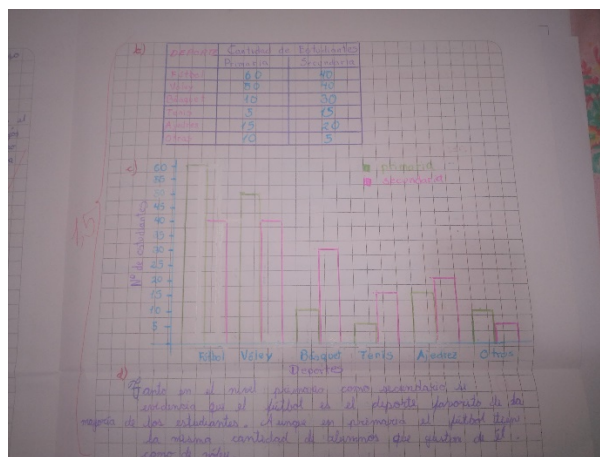 b)
DEPORTE Cantidad de Estudiantes
Primaria Secundaria
Fútbol 60 40
Voley 50 40
Básquet 10 30
Tenis 5 15
Ajedrez 15 20
Otros 10 5
c)
primaria
secundaria
N° de estudiantes
60
55
50
45
40
35
30
25
20
15
10
5
Fútbol Voley Básquet Tenis Ajedrez Otros
Deportes
d)
Tanto en el nivel como secundario se
evidencia que el fútbol es el deporte favorito de la
mayoría de los estudiantes. Aunque en el fútbol
la misma cantidad de alumnos que gustan de él
como de